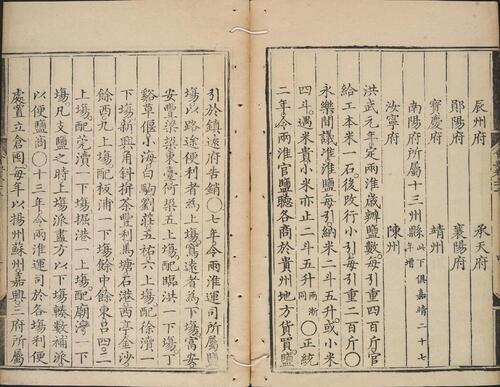 辰州府　承天府
鄖陽府　襄陽府
寶慶府　靖州
南陽府所屬十三州縣此下俱嘉靖二十七年增
汝寧府　陳州
洪武元年定兩淮歲辦鹽數每引重四百斤官
給工本米一石後改行小引每引重二百斤〇
永樂間議准淮鹽每引納米二斗五升或小米
四斗遇米貴小米亦止二斗五升兩浙同〇正統
二年令兩淮官鹽聽各商於貴州地方貨買鹽
引於鎮遠府告銷〇七年令兩淮運司所屬鹽
場以路途便利者為上場寫遠者為下場富安
安豐梁垜東臺何垜五上場配臨洪一下場丁
谿草偃小海白駒劉莊五祐六上場配徐瀆一
下場新興角斜拼茶豐利馬塘石港西亭金沙
餘西九上場配板浦一下場餘中餘東呂四三
上場配莞瀆一下場掘港一上場配廟灣一下
場凡支鹽之時上場派盡方以下場輳數補派
以便鹽商〇十三年令兩淮運司於各場利便
處置立倉囤每年以揚州蘇州嘉興三府所屬